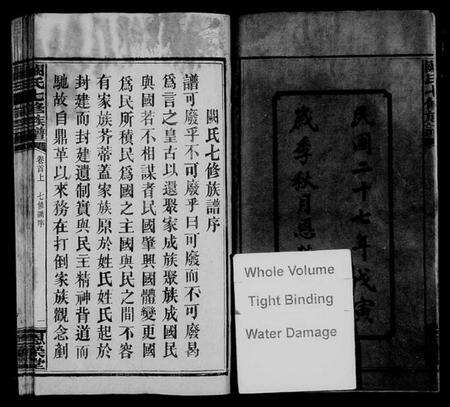 民國二十七年戊寅
歲季秋月
Whole Volume
Tight Binding
Water Damage
闕氏七修族譜序
譜可廢乎不可廢乎曰可廢而不可廢曷
為言之皇古以還聚家成族聚族成國民
與國若不相謀者民國肇興國體變更國
為民所積民為國之主國與民之間不容
有家族芥蒂蓋家族原於姓氏姓氏起於
封建而封建遺制實與民主精神背道而
馳故自鼎革以來務在打倒家族觀念剷
闕氏七修族譜
卷首上
七修譜序